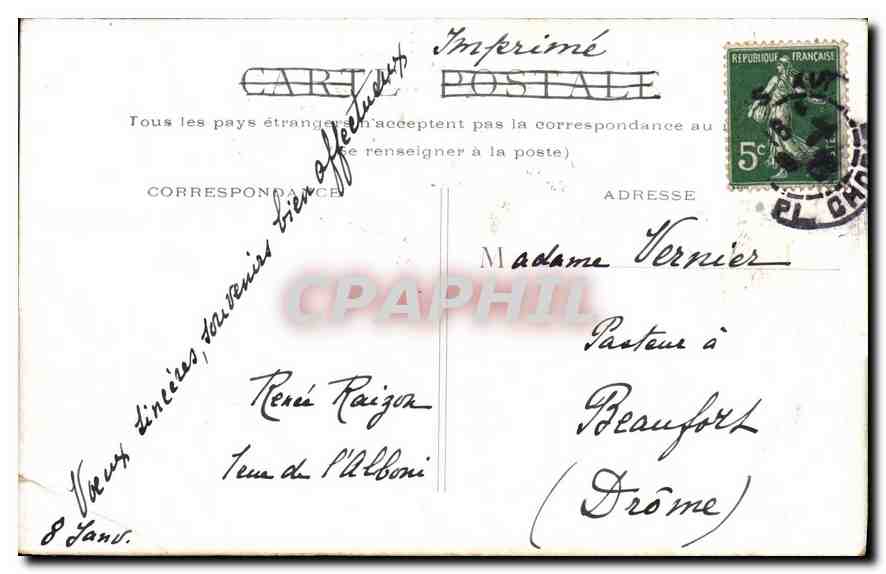 Imprimé
CARTE POSTALE
Tous les pays étrangers n'acceptent pas la correspondance au
se renseigner à la poste)
CORRESPONDANCE
ADRESSE
REPUBLIQUE FRANÇAISE
5c
POSTES
PL. CHOPIN
Madame Vernier
Pasteur à
Beaufort
(Drôme)
Voeux sincères, souvenirs bien affectueux
Renée Raizon
rue de l'Alboni
8 Janv.
CPAPHIL